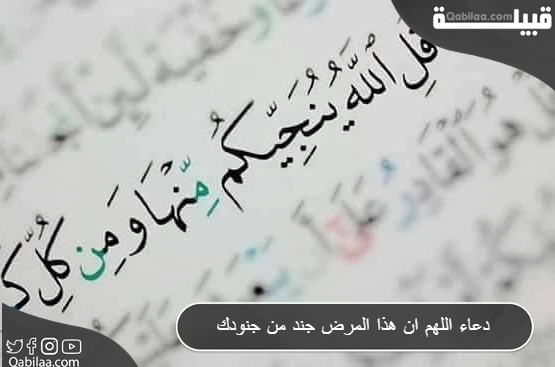 قبيلة
Qabilaa.com
وخفية لئن أ
قل ٱلله ينجيكم منها ومن كل ك
هو القادر على أن يبع
دعاء اللهم ان هذا المرض جند من جنودك
Qabilaa.com